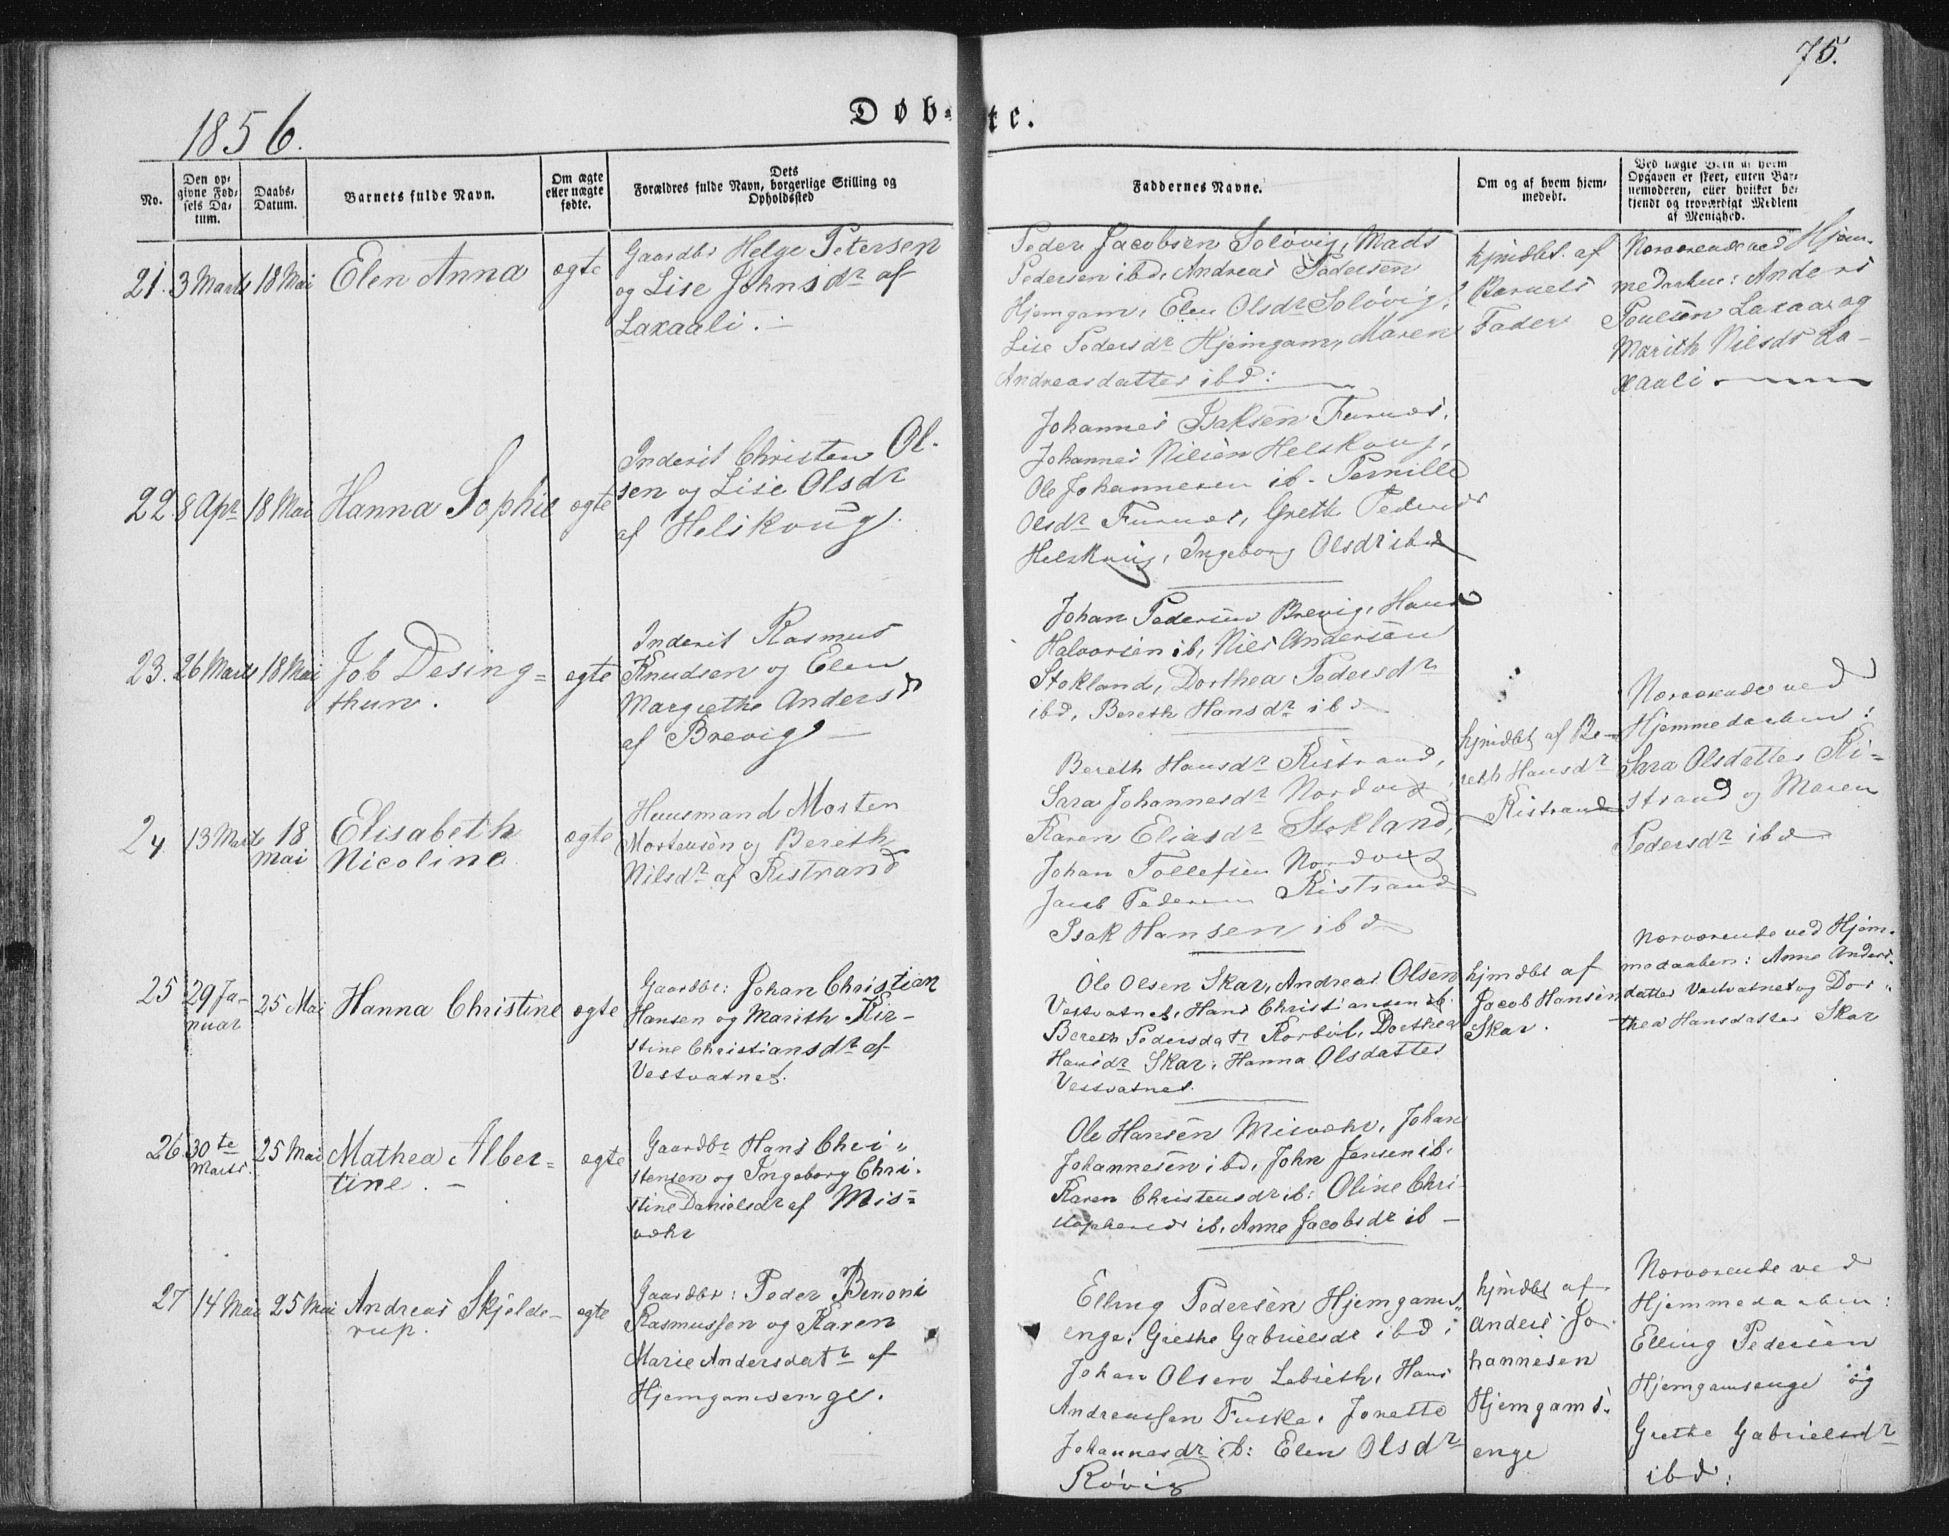 75.
1856.
Døb-te.
No.
Den op-
givne Fød-
sels Da-
tum.
Daabs-
Datum.
Barnets fulde Navn.
Om ægte
eller uægte
fødte.
Dets
Forældres fulde Navn, borgerlige Stilling og
Opholdssted
Faddernes Navne.
Om og af hvem hjem-
medøbt.
Ved uægte Børn af hvem
Opgaven er skeet, enten Bar-
nemoderen, eller hvilket be-
kjendt og troværdigt Medlem
af Menighed.
21. 3 Marts 18 Mai Elen Anna ægte
Gaardbr Helge Petersen
og Lise Johnsdr af
Laxaali.
Peder Jacobsen Soløvig, Mads
Pedersen ibd, Andreas Pedersen
Hjemgam, Elen Olsdr Soløvig,
Lise Pedersdr Hjemgam, Maren
Andreasdatter ibd:
hjmdbt. af
Barnets
Fader
Nærværende ved Hjem-
medaaben: Anders
Poulsen Laxaa og
Marith Nilsdr La-
xaali
22 8 Apr 18 Mai Hanna Sophie ægte
Inderst Christen Ol-
sen og Lise Olsdr
af Helskoug.
Johannes Isaksen Furnæs,
Johannes Nilsen Helskoug,
Ole Johannesen ib. Pernille
Olsdr Furnæs, Greth Pedersdr
Helskoug, Ingeborg Olsdr ibd
23. 26 Marts 18 Mai Job Desing-
thun.
ægte
Inderst Rasmus
Knudsen og Elen
Margrethe Andersd
af Brevig
Johan Pedersen Brevig, Hans
Halvorsen ib, Niels Andersen
Stokland, Dorthea Pedersdr
ibd, Bereth Hansdr ibd
24 13 Marts 18
Mai
Elisabeth
Nicoline
ægte
Huusmand Morten
Mortensen og Bereth
Nilsdr af Ristrand
Bereth Hansdr Ristrand,
Sara Johannesdr Nordvig
Karen Eliasdr Stokland,
Johan Tollefsen Nordvig
Jacob Pedersen Ristrand
Isak Hansen ibd
hjmdbt af Be-
reth Hansdr
Ristrand
Nærværende ved
Hjemmedaaben:
Sara Olsdatter Ri-
strand og Maren
Pedersdr ibd
25 29 Ja-
nuar
25 Mai Hanna Christine ægte
Gaardbr: Johan Christian
Hansen og Marith Kir-
stine Christiansdr af
Vestvatnet.
Ole Olsen Skar, Andreas Olsen
Vestvatnet, Hans Christiansen ib.
Bereth Pedersdatr Korbøl, Dorthea
Hansdr Skar, Hanna Olsdatter
Vestvatnet.
hjmdbt af
Jacob Hansen
Skar.
Nærværende ved Hjem-
medaaben: Anne Anders-
datter Vestvatnet og Dor-
thea Hansdatter Skar
26 30te
Marts.
25 Mai Mathea Alber-
tine.
ægte
Gaardbr Hans Chri-
stensen og Ingeborg Chri-
stine Danielsdr af Mis-
vær
Ole Hansen Misvær, Johan
Johannesen ibd, John Jensen ib.
Karen Christensdr ib: Oline Chri-
stophersdr ib, Anne Jacobsdr ib
27 14 Mai 25 Mai Andreas Skjelde-
rup.
ægte
Gaardbr: Peder Benoni
Rasmussen og Karen
Marie Andersdatr af
Hjemgamsenge.
Elling Pedersen Hjemgams-
enge, Grethe Gabrielsdr ibd,
Johan Olsen Lebiesth, Hans
Andreassen Fuske, Jonette
Johannesdr ib: Elen Olsdr
Røvig
hjmdbt af
Anders Jo-
hannesen
Hjemgams-
enge
Nærværende ved
Hjemmedaaben:
Elling Pedersen
Hjemgamsenge og
Grethe Gabrielsdr
ibd: